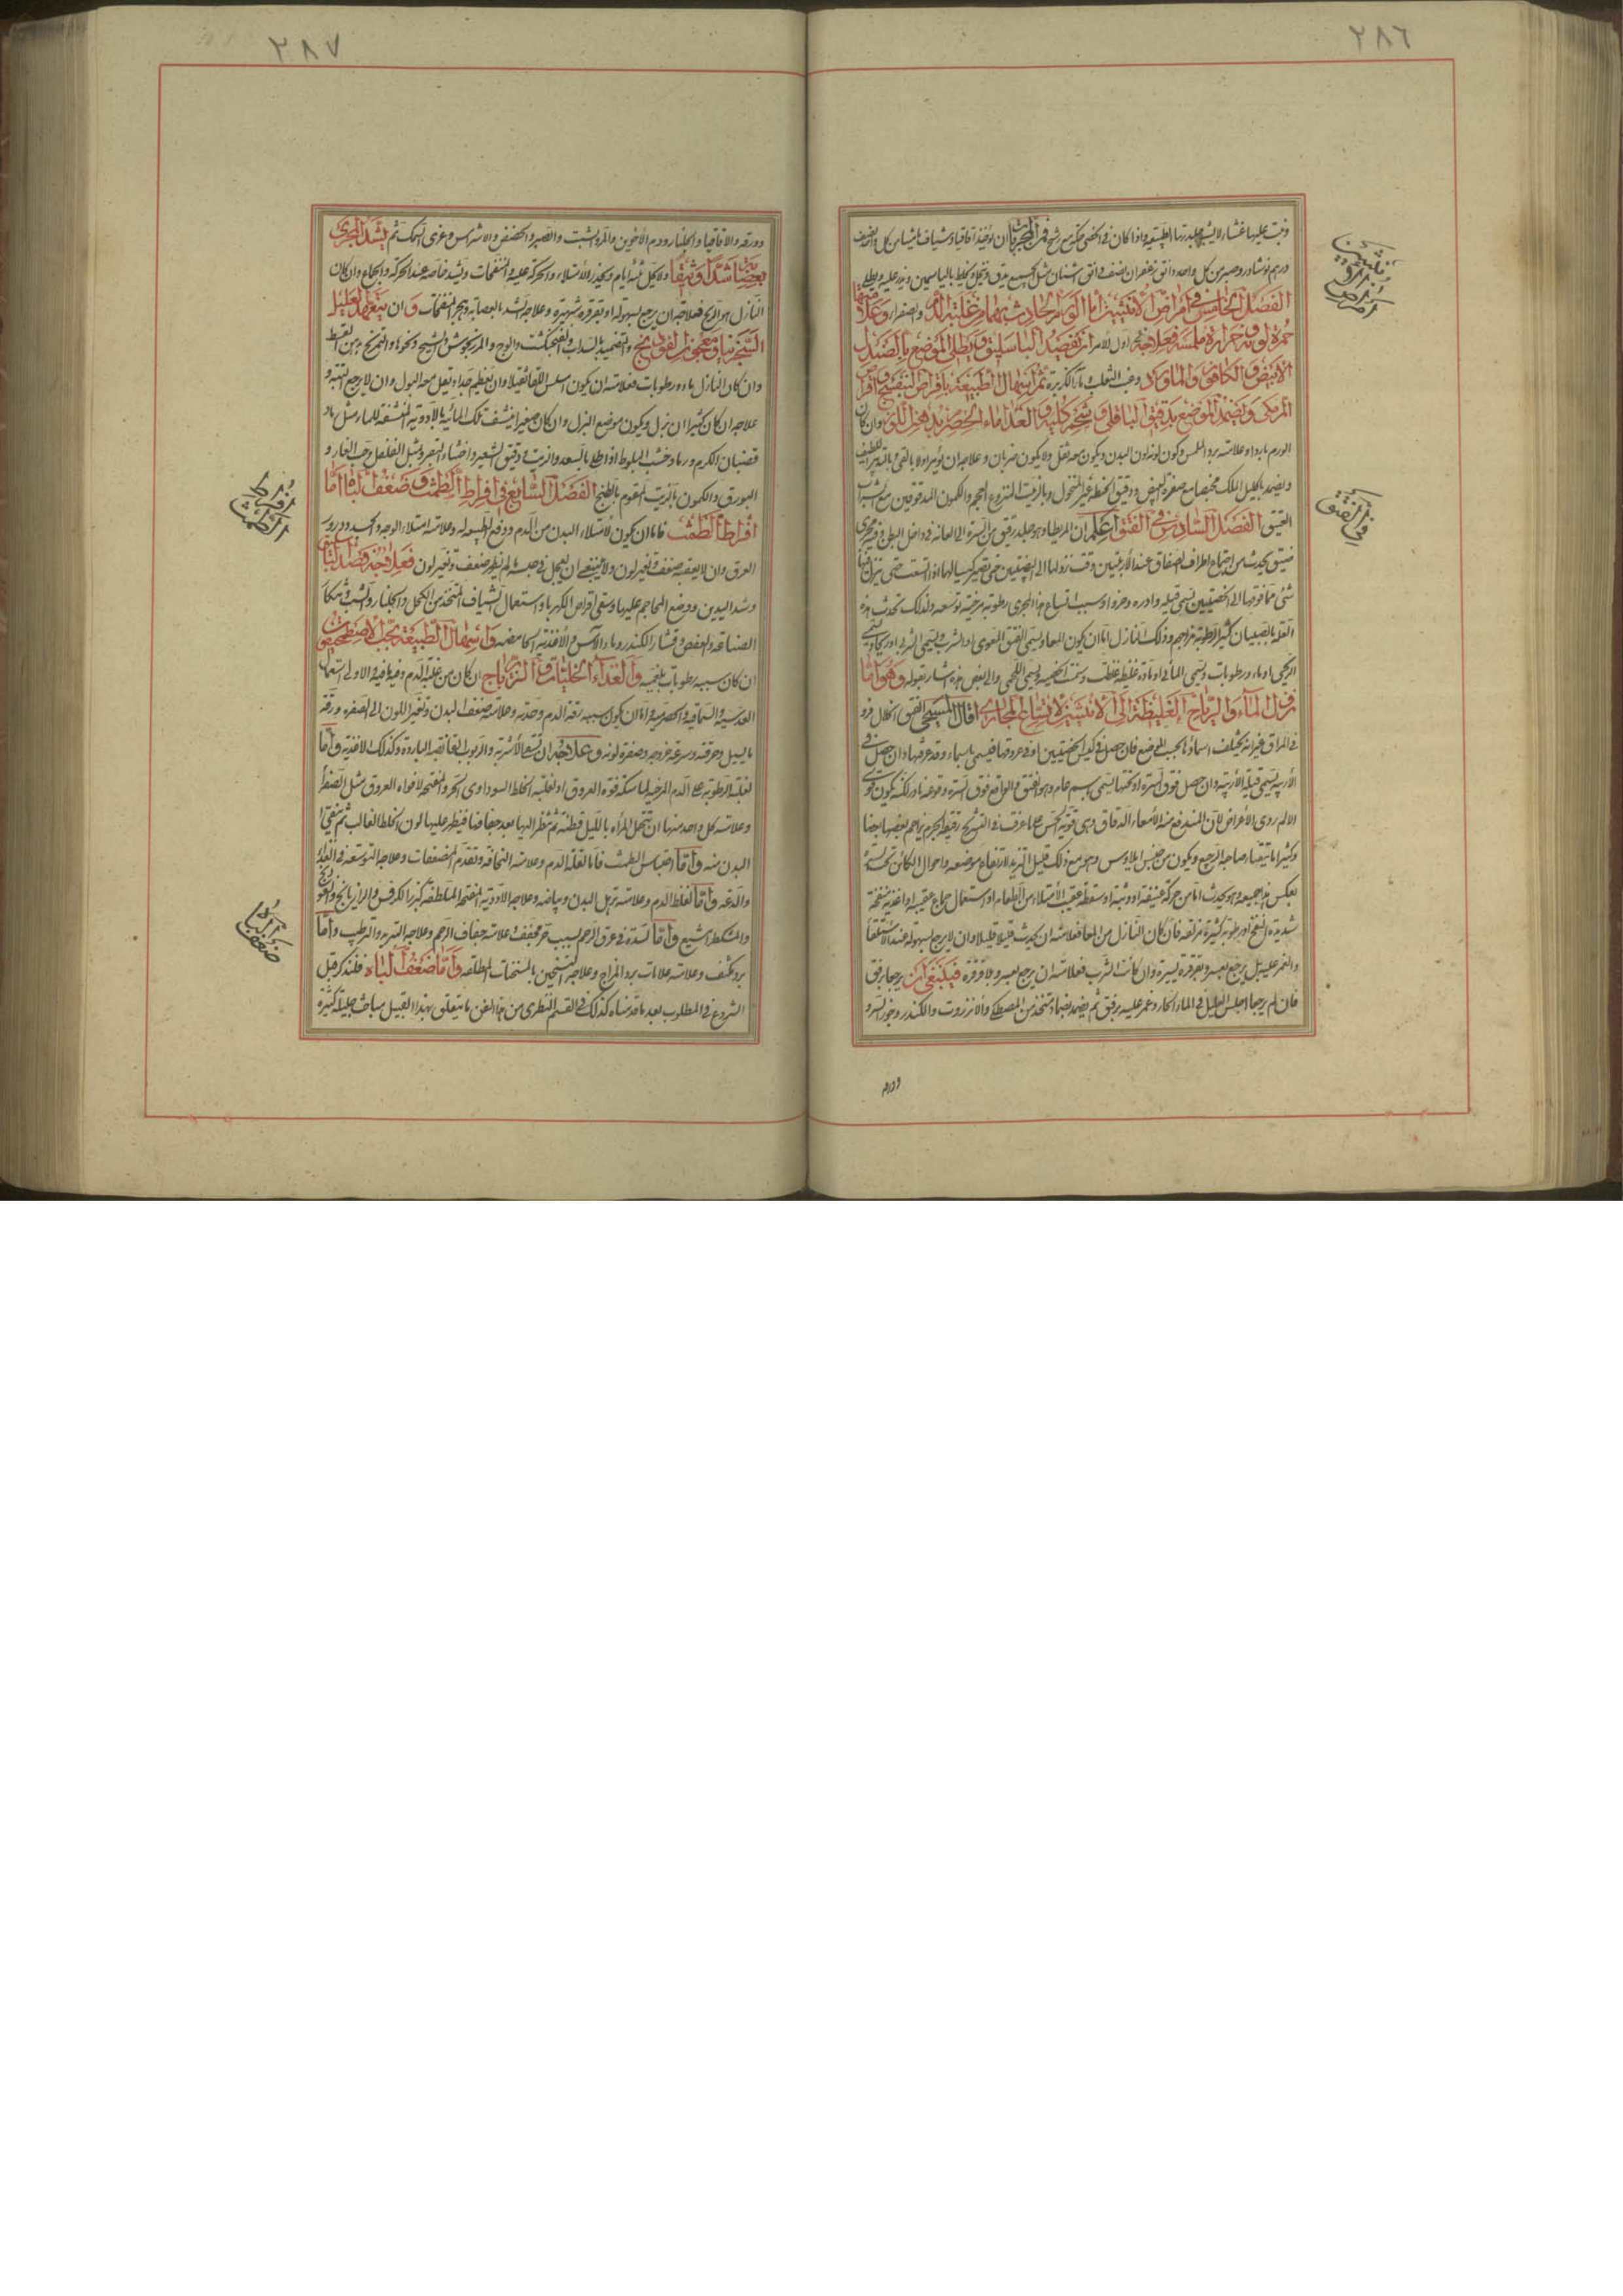 ٢٨٦
ونبت عليها غشاء لا يشبه جلدتها الطبيعية واذا كان في الخصى حكة مع رشح فمن المجربات ان يؤخذ اقاقيا وشياف ماميثا من كل واحد نصف
درهم نوشادر وصبر من كل واحد دانق زعفران نصف دانق اشنان مثل الجميع يدق وينخل ويخلط بالياسمين ويطلى
الفصل الخامس في امراض الانثيين اما الورم الحادث بهما من غلبة الدم والصفراء وعلامتها
حمرة لونه وحرارة ملمسه فعلاجه اول الامر ان تفصد الباسليق ويطلى الموضع بالصندل
الابيض والكافور والماورد وعنب الثعلب وماء الكزبرة ثم اسهال الطبيعة باقراص البنفسج واقراص
المزمكى ويضمد الموضع بدقيق الباقلى وشحم كلية والغذاء ماء الحصرم بدهن اللوز وان كان
الورم باردا وعلامته برد الملمس وكون لونه لون البدن ويكون معه ثقل ولا يكون ضربان وعلاجه ان يؤمر اولا بالقئ وبالتدبير اللطيف
ويضمد باكليل الملك مختصا مع صفرة البيض ودقيق الحنطة غير المنخول وبالزبيب المنزوع العجم والكمون المدقوقين مع الشراب
العتيق الفصل السادس في الفتق اعلم ان المريطاء وهو جلد رقيق من السرة الى العانة في داخل البطن فيه مجرى
ضيق يحدث من اجتماع اطراف الصفاق عند الأربيتين وقت نزولها الى البيضتين حتى تصير كيسا لها اذا اتسعت حتى ينزل فيها
شئ مما فوقها الى الخصيتين يسمى قيلة وادرة وقروا وسبب اتساع هذا المجرى رطوبة مرخية توسعه ولذلك تحدث هذه
العلة بالصبيان كثيرا لرطوبة مزاجهم وذلك النازل اما ان يكون المعاء ويسمى الفتق المعوى او الثرب ويسمى الثربى او ريحا ويسمى
الريحى او ماء ورطوبات ويسمى المائى او مادة غليظة غلظت وسمنت الخصية ويسمى اللحمى والى بعض هذه اشار بقوله وهو اما
نزول الماء والرياح الغليظة الى الانثيين لاتساع المجارى قال المسيحى الفتق انحلال فرد
في المراق غير انه يختلف اسماؤه بحسب المواضع فان حصل في كيس الخصيتين او في عروقها فيسمى باسماء وقد عرفتها وان حصل في
الأربية يسمى قيلة الأربية وان حصل فوق السرة او تحتها يسمى باسم عام وهو الفتق والواقع فوق السرة وقوعه نادر لكنه يكون قوى
الالم ردى الاعراض لان المندفع منه الأمعاء الدقاق وهى قوية الحس على ما عرفت في التشريح رقيقة الجرم يزاحم بعضها بعضا
وكثيرا ما يتقيأ صاحبه الرجيع ويكون من جنس ايلاوس وهو مع ذلك قليل التزيد لارتفاع موضعه واحوال الكائن تحت السرة
بعكس هذا جميعه وهو يحدث اما من حركة عنيفة او وثبة او سقطة عقيب الأمتلاء من الطعام او استعمال جماع عقيبه او اغذية منفخة
شديدة النفخ او رطوبة كثيرة مزلقة فان كان النازل من المعا فعلامته ان يحدث قليلا قليلا وان لا يرجع بسهولة عند الاستلقاء
والغمز عليه بل يرجع بعسر وبقرقرة يسيرة وان كانت الثرب فعلامته ان يرجع بعسر وبلا قرقرة فينبغى ان يرجعا برفق
فان لم يرجعا اجلس العليل في الماء الحار وغمز عليه برفق ثم يضمد بضماد متخذ من المصطكى والأنزروت والكندر وجوز السرو
وورم
في امراض الانثيين
في الفتق
٢٨٧
وورقه والاقاقيا والجلنار ودم الأخوين والمر والشبت والصبر والحضض والاشراس وغرى السمك ثم يشد المجرى
بعصابة شدا وثيقا ولا يحل ثلثة ايام ويحذر الأمتلاء والحركة عليه والمنفخات ويشد خاصة عند الحركة والجماع وان كان
النازل هو الريح فعلامته ان يرجع بسهولة او بقرقرة شهيرة وعلاجه الشد بالعصابة وهجر المنفخات وان يتعهد العليل
السنجرنيا ومعجون الفودنج والتضميد بالسداب والفنجنكشت والوج والمرزنجوش والشيح ونحوها والتمريخ بدهن القسط
وان كان النازل ماء ورطوبات فعلامته ان يكون املس اللقاء ثقيلا وان يعظم جدا ويقل معه البول وان لا يرجع البتة و
علاجه ان كان كثيرا ان يبزل ويكوى موضع البزل وان كان صغيرا فينشف تلك المائية بالأدوية المنشفة للماء مثل رماد
قضبان الكرم ورماد خشب البلوط اذا طلى بالسعد والزيت ودقيق الشعير واخثاء البقر ومثل الفلفل وحب الغار و
البورق والكمون بالزيت المقوم بالطبخ الفصل السابع في افراط الطمث وضعف الباه اما
افراط الطمث فاما ان يكون لأمتلاء البدن من الدم ودفع الطبيعة له وعلامته امتلاء الوجه والجسد ودرور
العرق وان لا يعقبه ضعف وتغير لون ولا ينبغى ان يعجل في حبسه ما لم يظهر ضعف وتغير لون فعلاجه فصد الباسليق
وشد اليدين ووضع المحاجم عليها وسقى اقراص الكهربا واستعمال الشياف المتخذ من الكحل والجلنار والشب
العفص وقشار الكندر وماء الآس والاغذية الحامضة واسهال الطبيعة بحب الاصطمخيقون
ان كان سببه رطوبات بلغمية والغذاء القليات والزيرباج ان كان من غلبة الدم
العدسية والسماقية والحصرمية واما ان يكون سببه رقة الدم وحدته وعلامته ضعف البدن وتغير اللون الى الصفرة ورقة
ما يسيل وحرقته وسرعة خروجه وصفرة لونه وعلاجه ان يسقى الأشربة والربوب القابضة الباردة وكذلك الاغذية واما
لغلبة الرطوبة على الدم المرخية لماسكة فوة العروق او لغلبة الخلط السوداوى الحار والمفتحة لافواه العروق مثل الصفراء
وعلامة كل واحد منها ان تتحمل المرأة بالليل قطنة ثم تنظر اليها بعد جفافها فيظهر عليها لون الخلط الغالب ثم ينقى
البدن منه واما احتباس الطمث فاما لقلة الدم وعلامته النحافة وتقدم المضعفات وعلاجه التوسعة في الغذاء
والدعة واما لغلظ الدم وعلامته ترهل البدن وبياضه وعلاجه الأدوية المفتحة الملطفة كبزر الكرفس والرازيانج والفودنج
والمشكطرامشيع واما لسدة في عروق الرحم بسبب حر مجفف وعلامته جفاف الرحم وعلاجه التبريد والترطيب واما
برد مكثف وعلامته علامات برد المزاج وعلاجه التسخين بالمسخنات الملطفة واما ضعف الباه فلنذكر قبل
الشروع في المطلوب بعد ما قدمناه كذلك في القسم النظرى من هذا الفن ما يتعلق بهذا القبيل مباحث جليلة كثيرة
افراط الطمث
ضعف الباه